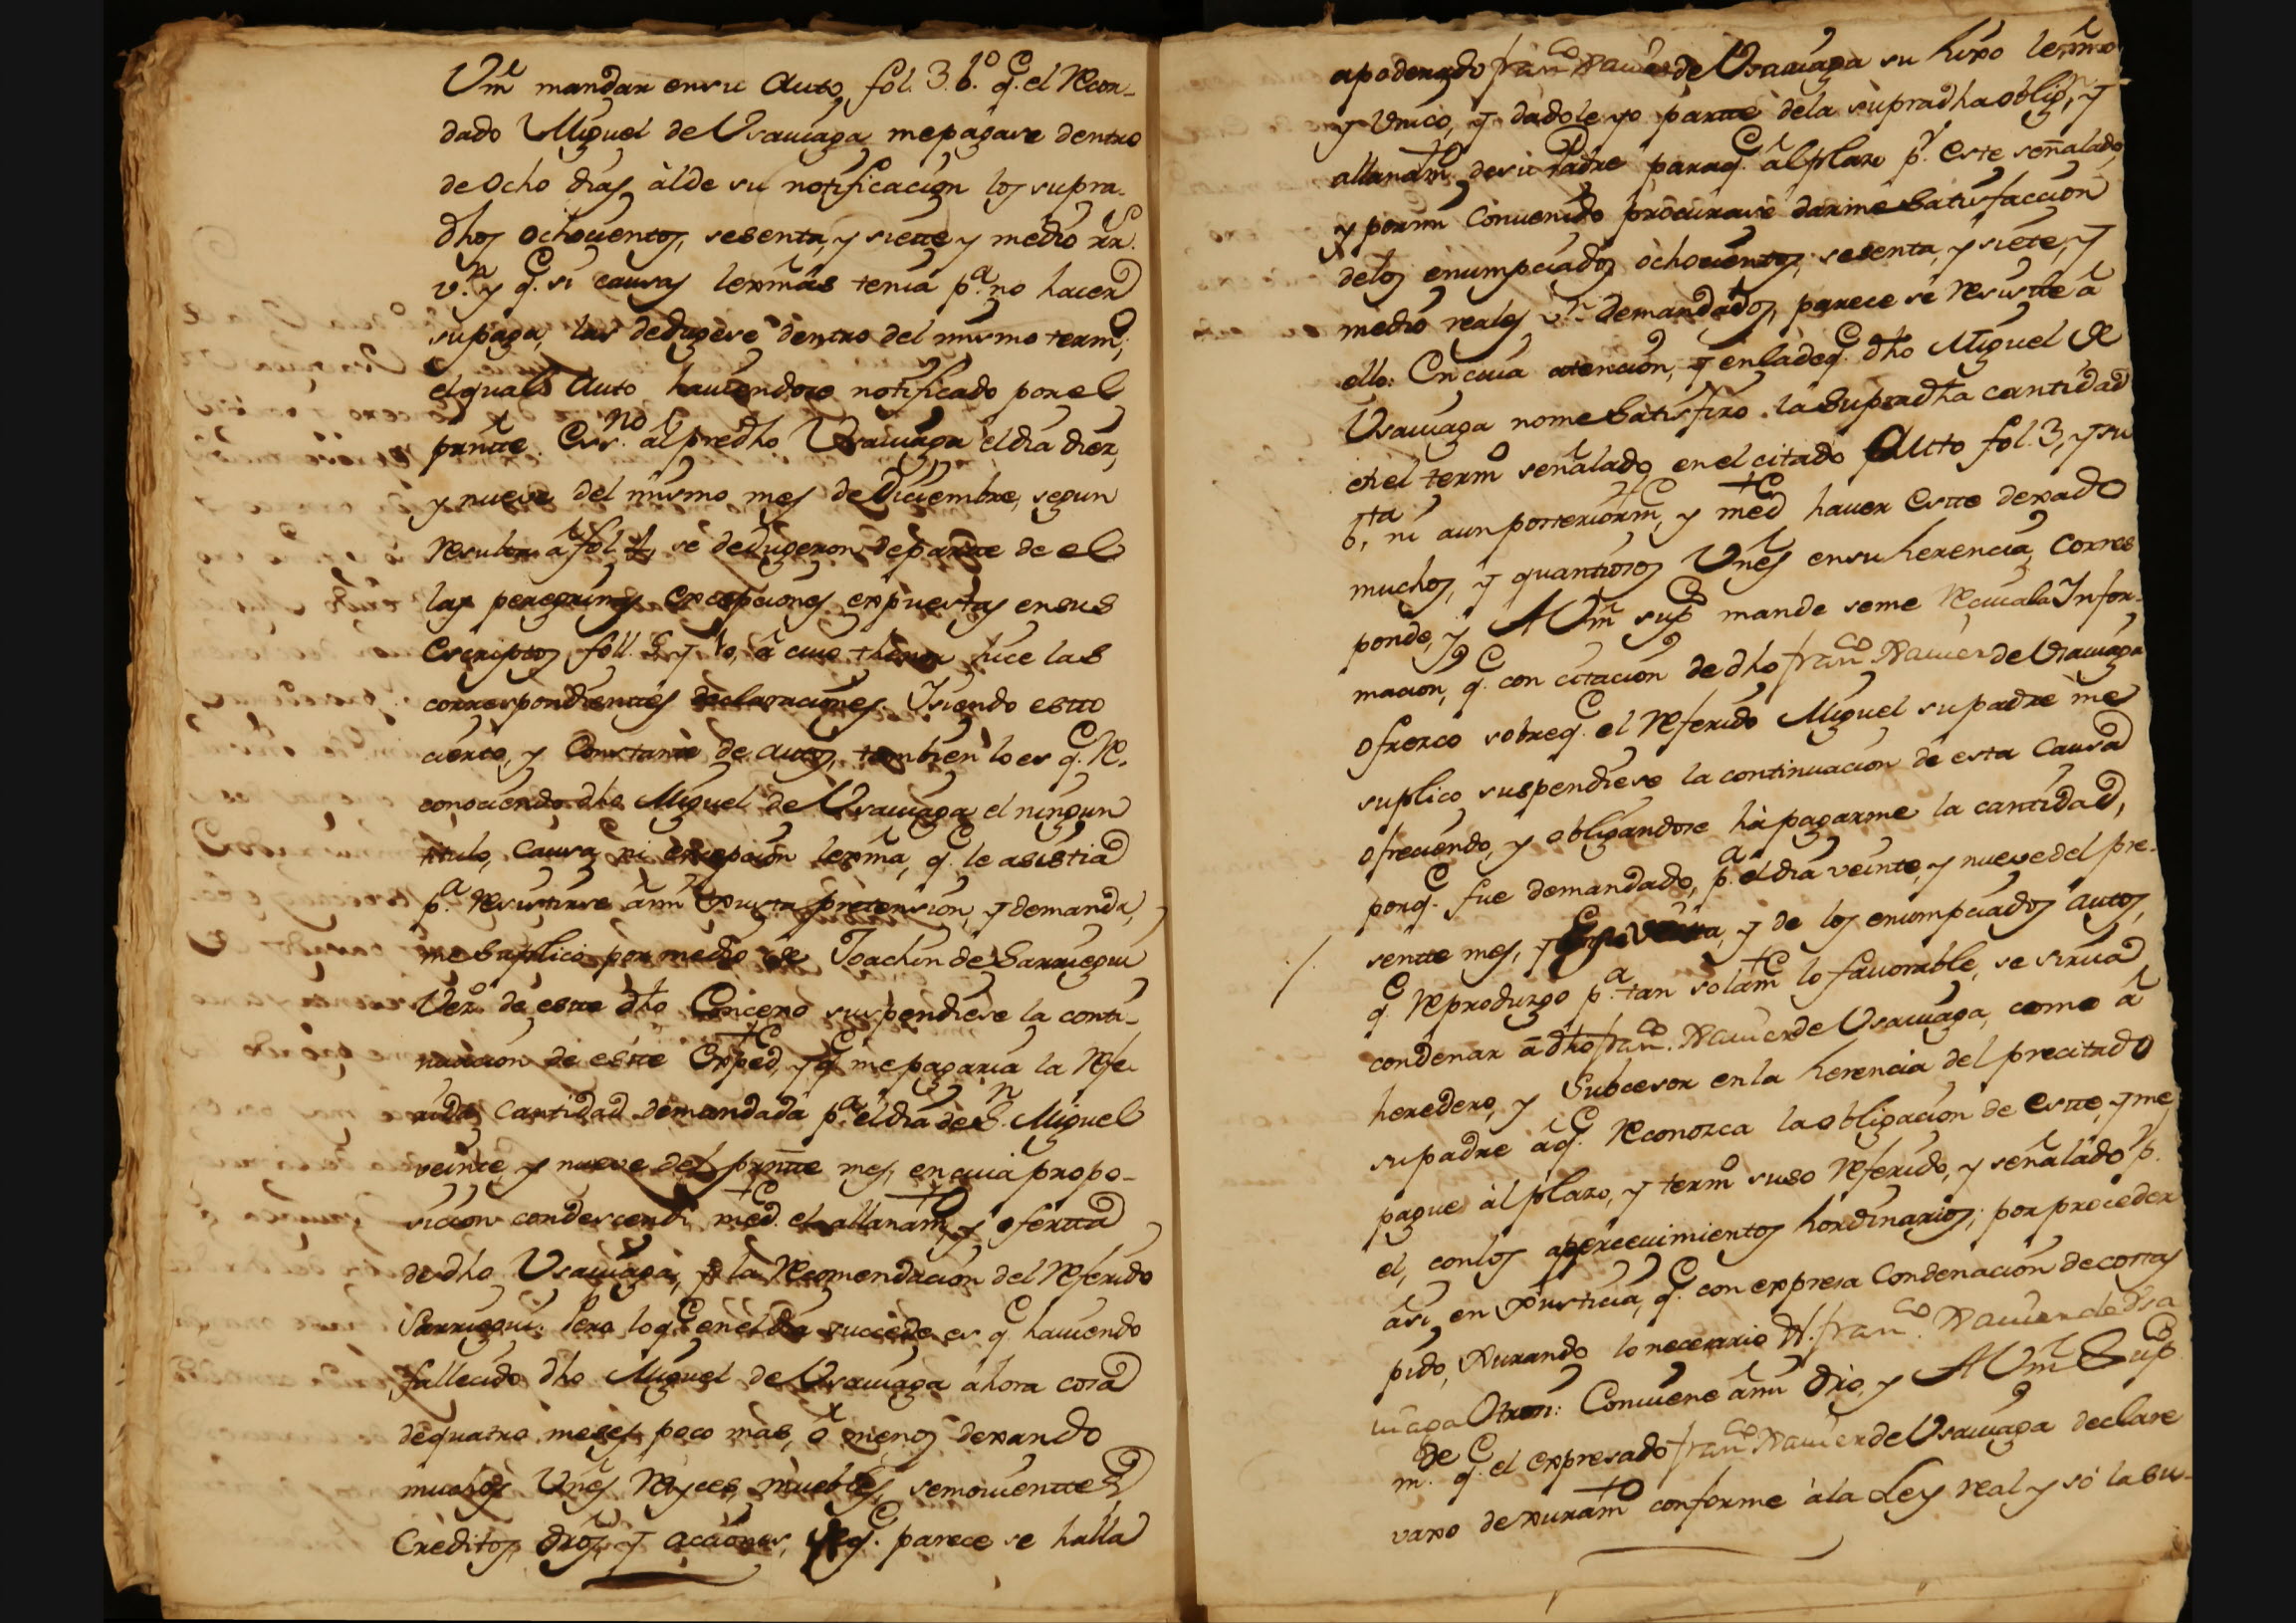 Vm̃ mandar en su Auto, fol. 3. bº. q.e el Recor-
dado Miguel de Vsauiaga me pagare dentro
de ocho dias àl de su notificacion los supra-
dhos ochocientos, sesenta, y siete y medio rr.s
v.n y q.e si causas lexmãs tenia p.a no hacer
su paga, las dedugese dentro del mismo termº;
el qual Auto hauiendose notificado por el
prñtte. Ess.no âl predho Vsauiaga el dia diez,
y nueve del mismo mes de Diciembre, segun
resulta â fol se dedugeron departte de el
las peregrinas excepciones expuestas en sus
Escriptos foll. y â cuio thenor hice las
correspondienttes declaraciones. Y siendo estto
cierto, y Constante de autos, tambien lo es q.e Re-
conociendo dho Miguel de Vsauiaga el ningun
titulo, causa, ni excepcion lexmã, q.e le asistia
p.a resistirse â mi Xusta pretension, y demanda,
me suplico por medio de Joachin de Sarriegui
Vezº de estte dho Concexo suspendiese la conti-
nuacion de estte Exped.te, y q.e me pagaria la Refe-
rida cantidad demandada p.a el dia de S.n Miguel
veinte, y nueve del prñtte mes, en cuia propo-
sicion condescendi med.te el allanam.to, y ofertta
de dho Vsauiaga, y la Recomendacion del Referido
Sarriegui. Pero lo q.e en el dia succede es q.e hauiendo
fallecido dho Miguel de Vsauiaga ahora cosa
de quatro meses poco mas, ò menos dexando
muchos Vnẽs Rayces, muebles, semouienttes,
Creditos, drõs, y acciones, q.e parece se halla
apoderado Fran.co Xauier de Vsauiaga su hixo lexmº
y Vnico, y dadole yo partte dela supradha oblig.n, y
allanam.to de su Padre para q.e âl plazo p.r este señalado,
y por mi Convenido procurase darme Satisfaccion
delos enumpciados ochocientos, sesenta, y siete, y
medio reales v.n demandados, parece se resistte â
ello: En cuia atencion, y en la de q.e dho Miguel de
Vsauiaga no me Satisfizo la Supradha cantidad
en el termº señalado en el citado Auto fol. 3, y su
b.ta, ni aun posteriorm.te, y med.te hauer estte dexado
muchos, y quantiosos Vnẽs en su herencia, corres-
ponde, y A Vm̃ sup.co mande se me Reciua la Infor-
macion, q.e con citacion de dho Fran.co Xauier de Vsauiaga
ofrezco sobre q.e el Referido Miguel su padre me
suplico suspendiese la continuacion de esta Causa
ofreciendo, y obligandose hà pagarme la cantidad,
por q.e fue demandado, p.a el dia veinte, y nueve del pre-
sentte mes, y y de los enumpciados autos,
q.e Reproduzgo p.a tan solam.te lo fauorable, se sirua
condenar â dho Fran.co Xauier de Vsauiaga, como â
heredero, y Subcesor en la herencia del precitado
su padre â q.e Reconozca la obligacion de estte, y me
pague àl plazo, y termº suso Referido, y señalado p.r
el, con los aperecuimientos hordinarios; por proceder
âsi en Xusticia, q.e con expresa Condenacion de costas
pido, Xurando lo necesario D. Fran.co Xauier de Vsa
uiaga Otrosi: Conuiene â mi dro, y A Vm̃ Sup.co
m.de q.e el expresado Fran.co Xauier de Vsauiaga declare
vaxo de xuram.to conforme àla Ley real y só la su-